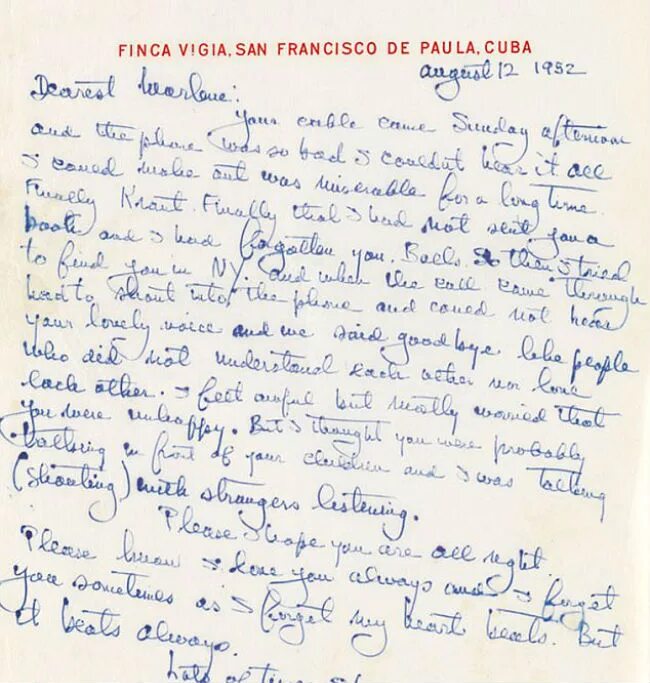 FINCA VIGIA, SAN FRANCISCO DE PAULA, CUBA
August 12 1952
Dearest Marlene:
Your cable came Sunday afternoon
and the phone was so bad I couldnt hear it all
I could make out was miserable for a long time.
Finally Kraut. Finally that I had not sent you a
book and I had forgotten you. Balls. So then I tried
to find you in NY. And when the call came through
had to shout into the phone and could not hear
your lovely voice and we said goodbye like people
who did not understand each other nor love
each other. I felt awful but mostly worried that
you were unhappy. But I thought you were probably
talking in front of your children and I was talking
(shouting) with strangers listening.
Please I hope you are all right.
Please know I love you always and I forget
you sometimes as I forget my heart beats. But
it beats always.
Lots of times